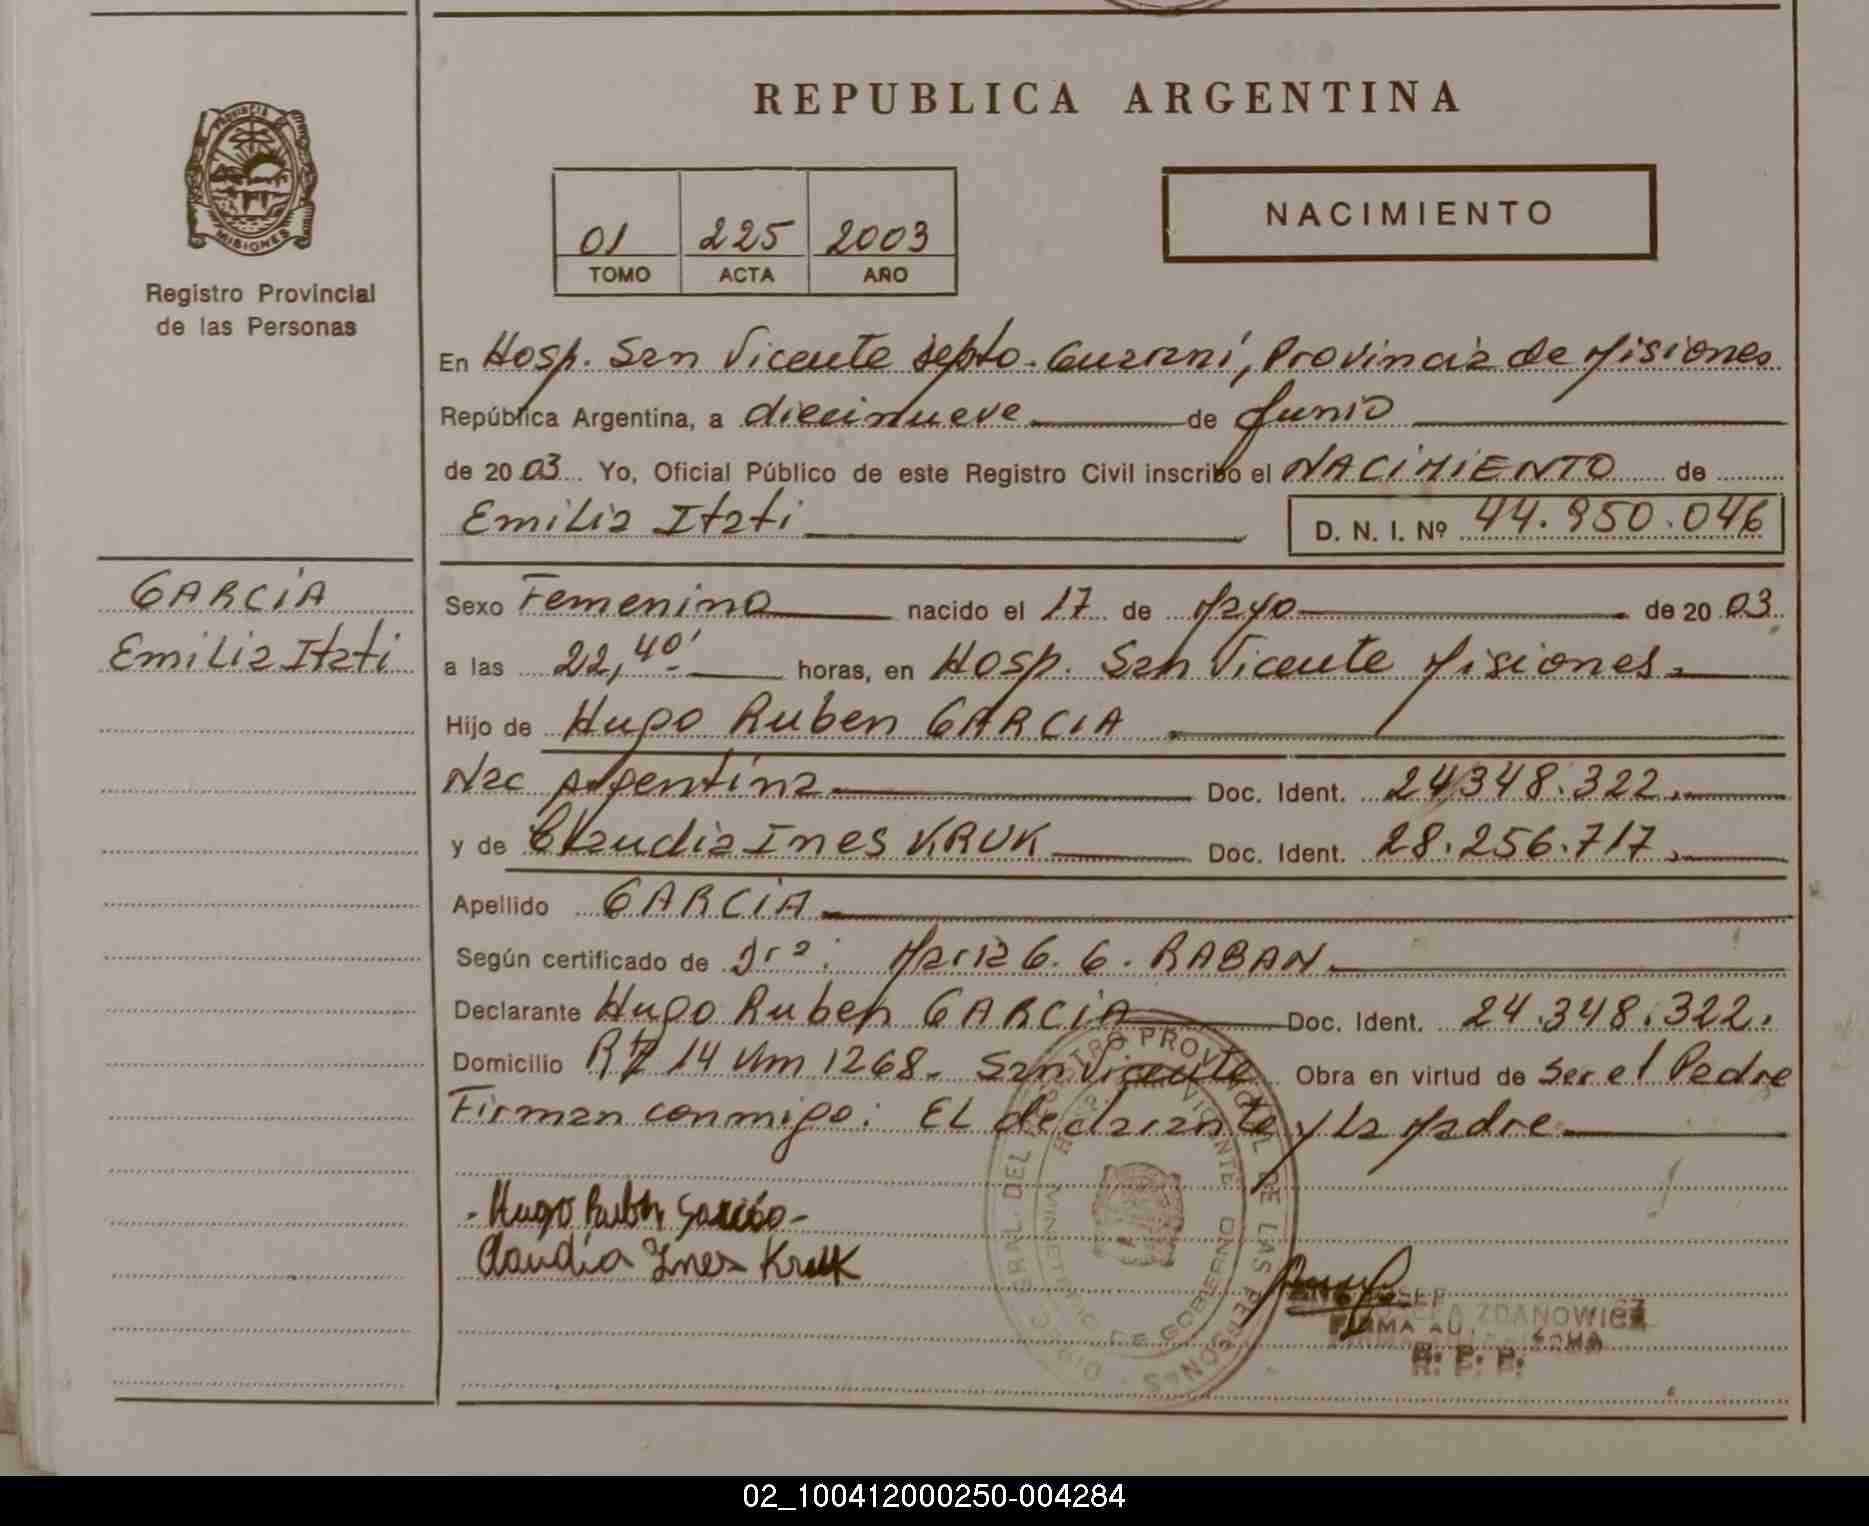 REPUBLICA ARGENTINA
PROVINCIA DE
MISIONES
Registro Provincial
de las Personas
01 225 2003
TOMO ACTA AÑO
NACIMIENTO
En Hosp. San Vicente Depto. Guaraní, Provincia de Misiones
República Argentina, a diecinueve de Junio
de 2003 Yo, Oficial Público de este Registro Civil inscribo el NACIMIENTO de
Emilia Itati D. N. I. Nº 44.950.046
GARCIA
Emilia Itati
Sexo Femenino nacido el 17 de Mayo de 2003
a las 22,40' horas, en Hosp. San Vicente Misiones.
Hijo de Hugo Ruben GARCIA
Nac Argentina Doc. Ident. 24.348.322.
y de Claudia Ines KRUK Doc. Ident. 28.256.717.
Apellido GARCIA
Según certificado de Dra: Maria G. G. RABAN.
Declarante Hugo Ruben GARCIA Doc. Ident. 24.348.322.
Domicilio 14 Km 1268. San Vicente Obra en virtud de ser el Padre
Firman conmigo: EL declarante y La Madre
- Hugo Ruben Garcia -
Claudia Ines Kruk
REGISTRO PROVINCIAL DE LAS PERSONAS
MINISTERIO DE GOBIERNO
ZDANOWICZ
FIRMA
R. P. P.
02_100412000250-004284